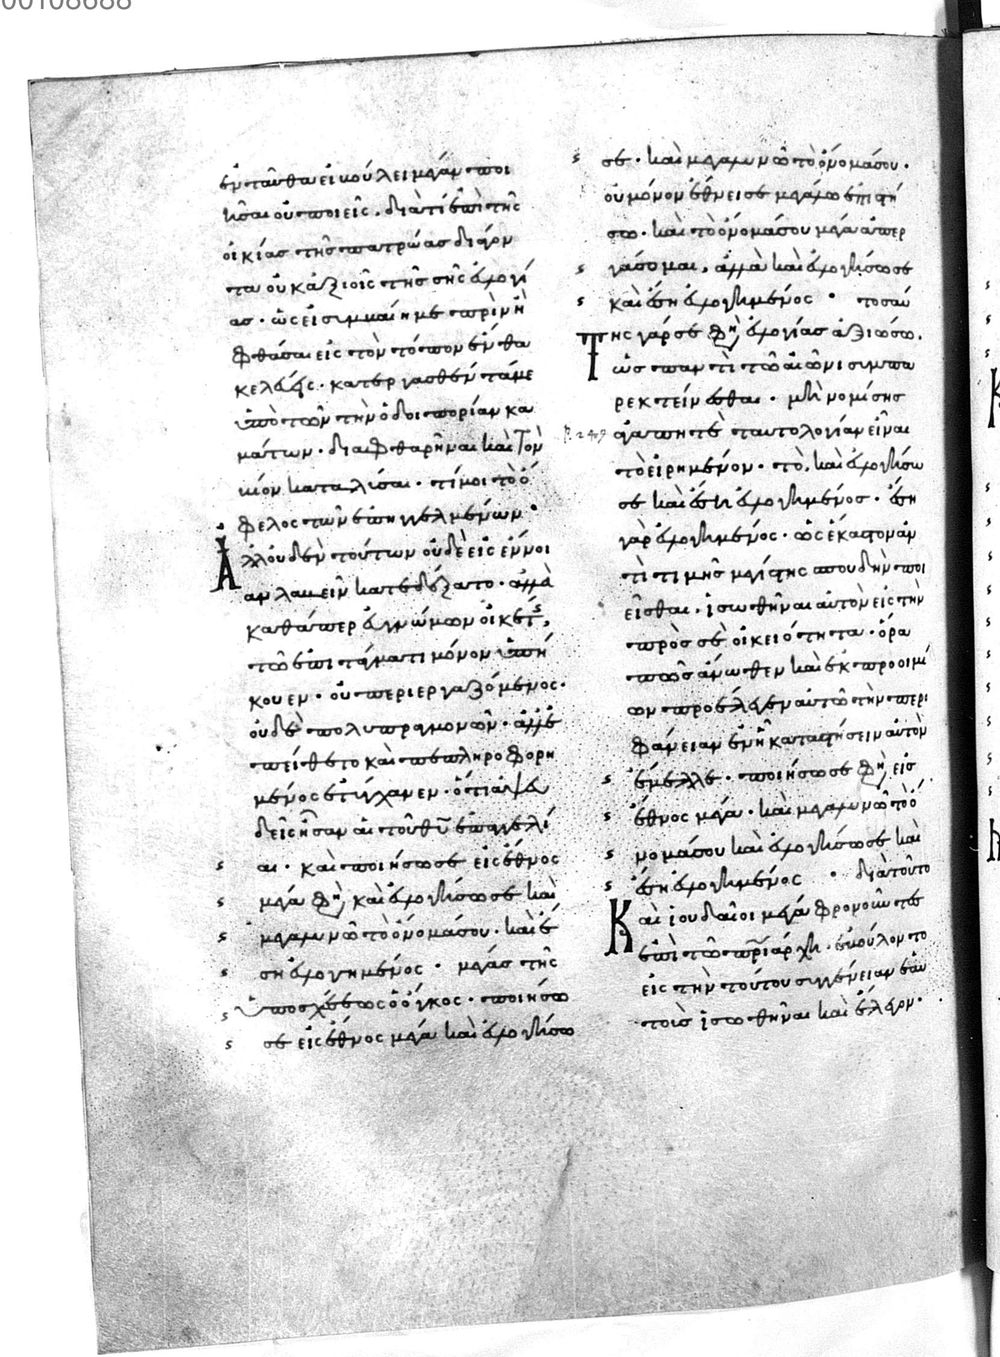 00108688
ἐνταῦθα εἰ βούλει μεγάν ποι
ῆσαι οὐ ποιεῖς. διὰ τί ἐπὶ τῆς
οἰκίας τῆς πατρώας διάγον
τα οὐκ ἀξιοῖς τῆς σῆς εὐλογί
ας· ὡς εἰ συμβαίη με πρινὴ
φθάσαι εἰς τὸν τόπον ἔνθα
κελεύεις· κατεργασθέντά με
ὑπὸ τῶν τὴν ὁδοιπορίαν κα
μάτων· διαφθαρῆναι καὶ τὸν
βίον καταλῦσαι· τί μοι τὸ ὄ
φελος τῶν ἐπηγγελμένων·
Ἀλλ οὐδὲν τούτων οὐδὲ εἰς ἔννοι
αν λαβεῖν κατεδέξατο· ἀλλὰ
καθάπερ εὐγνώμων οἰκέτης,
τῶ ἐπιτάγματι μόνον ὑπή
κουεν· οὐ περιεργαζόμενος·
οὐδὲ πολυπραγμονῶν· ἀλλ ἐ
πείθετο καὶ πεπληροφορη
μένος ἐτύγχανεν· ὅτι ἀψευ
δεῖς ἦσαν αἱ τοῦ θυ ἐπαγγελί
αι· καὶ ποιήσω σε εἰς ἔθνος
μέγα φη, καὶ εὐλογήσω σε καὶ
μεγαλυνῶ τὸ ὄνομά σου· καὶ ἔ
ση εὐλογημένος· μέγας τῆς
ὑποσχέσεως ὁ ὄγκος· ποιήσω
σε εἰς ἔθνος μέγα καὶ εὐλογήσω
σε· καὶ μεγαλυνῶ τὸ ὄνομά σου·
οὐ μόνον ἔθνει σε μεγάλω ἐπιστή
σω· καὶ τὸ ὄνομά σου μέγα ἀπερ
γάσομαι, ἀλλὰ καὶ εὐλογήσω σε
καὶ ἔση εὐλογημένος· τοσαύ
Της γάρ σε φη, εὐλογίας ἀξιώσω,
ὡς παντὶ τῶ αἰῶνι συμπα
ρεκτείνεσθαι· μὴ νομίσης
ἀγαπητὲ ταυτολογίαν εἶναι
τὸ εἰρημένον· τὸ, καὶ εὐλογήσω
σε καὶ ἔση εὐλογημένος· ἔση
γὰρ εὐλογημένος· ὡς ἕκαστον ἀν
τὶ τιμῆς μεγίστης σπουδὴν ποι
εῖσθαι, ἰσωθῆναι αὐτὸν εἰς τὴν
πρὸς σὲ οἰκειότητα· ὅρα
πῶς ἄνωθεν καὶ ἐκ προοιμί
ων προέλεγεν αὐτῶ τὴν περι
φάνειαν ἐν ἧ καταστήσειν αὐτὸν
ἔμελλε· ποιήσω σε φη, εἰς
ἔθνος μέγα· καὶ μεγαλυνῶ τὸ ὄ
νομά σου καὶ εὐλογήσω σε καὶ
ἔση εὐλογημένος· διὰ τοῦτο
Καὶ ἰουδαῖοι μέγα φρονοῦντες
ἐπὶ τῶ πριάρχη· ἐβούλοντο
εἰς τὴν τούτου συγγένειαν ἑαυ
τοὺς ἰσωθῆναι καὶ ἔλεγον·